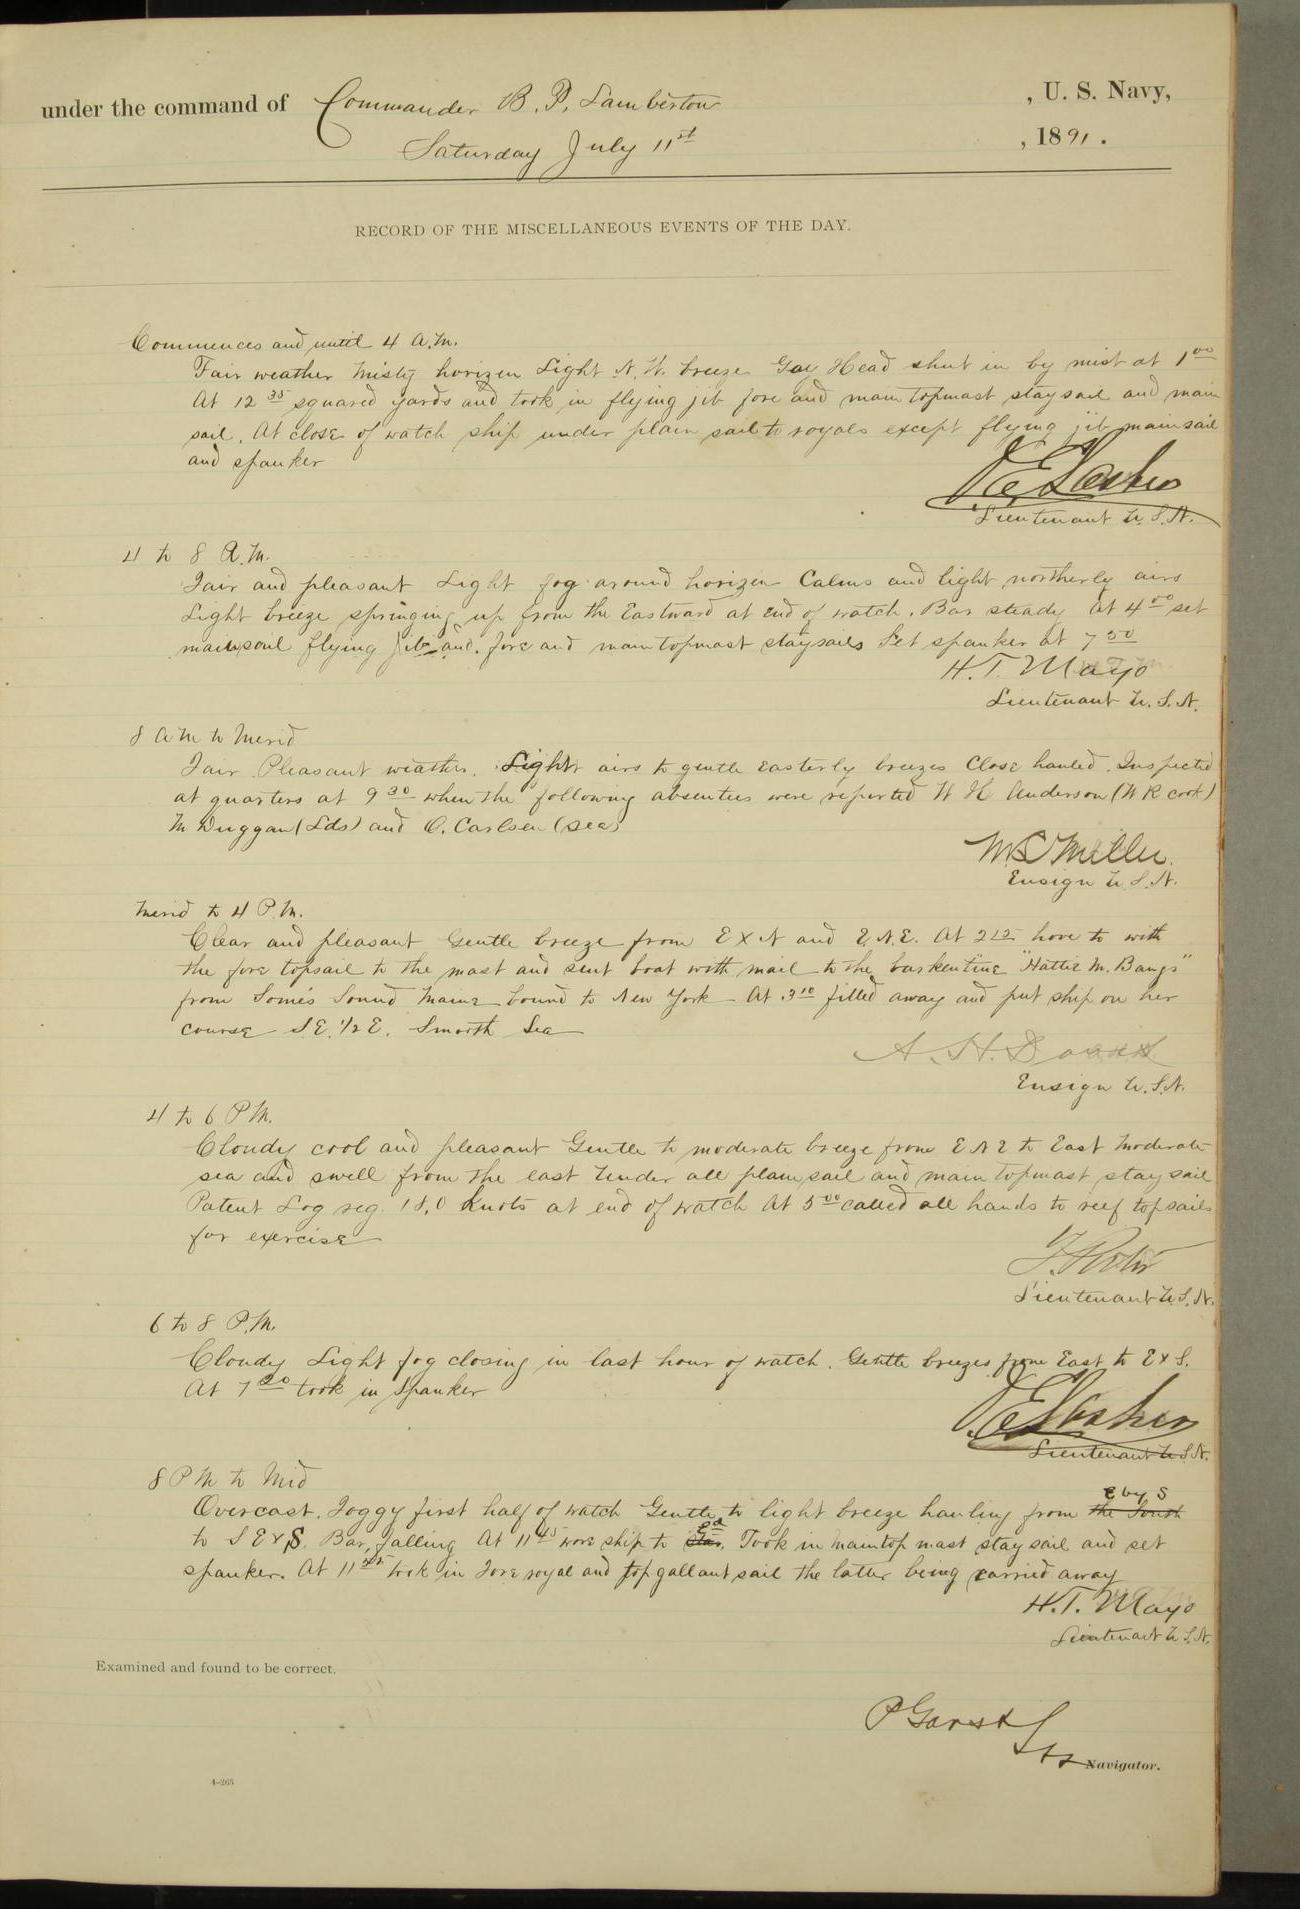 under the command of Commander B. P. Lamberton , U. S. Navy,
Saturday July 11st , 1891.
RECORD OF THE MISCELLANEOUS EVENTS OF THE DAY.
Commences and until 4 A.M.
Fair weather Misty horizen Light N.W. breeze Gay Head shut in by mist at 1 00
At 12 35 squared yards and took in flying jib fore and main topmast staysail and main
sail. At close of watch ship under plain sail to royals except flying jib mainsail
and spanker
Lieutenant U.S.N.
4 to 8 A.M.
Fair and pleasant Light fog around horizen Calms and light northerly airs
Light breeze springing up from the Eastward at end of watch. Bar steady At 4 00 set
mainsail flying jib and fore and main topmast staysails Set spanker at 7 50
H. T. Mayo
Lieutenant U.S.N.
8 AM to Merid
Fair Pleasant weather. Light airs to gentle Easterly breezes Close hauled. Inspected
at quarters at 9 30 when the following absentees were reported W H Anderson (W R cook)
M Duggan (Lds) and O. Carlsen (sea)
Miller
Ensign U.S.N.
Merid to 4 P.M.
Clear and pleasant Gentle breeze from E x N and E.N.E. At 2 15 hove to with
the fore topsail to the mast and sent boat with mail to the barkentine "Hattie M. Bangs"
from Some's Sound Maine bound to New York At 3 10 filled away and put ship on her
course S E. 1/2 E. Smooth Sea
A. H.
Ensign U.S.N.
4 to 6 P.M.
Cloudy cool and pleasant Gentle to moderate breeze from E N E to East Moderate
sea and swell from the east Under all plain sail and main topmast stay sail
Patent Log reg. 18.0 Knots at end of watch At 5 00 called all hands to reef topsails
for exercise
Lieutenant U.S.N.
6 to 8 P.M.
Cloudy Light fog closing in last hour of watch. Gentle breezes from East to E x S.
At 7 20 took in Spanker
Lieutenant U.S.N.
8 P M to Mid
E by S
Overcast. Foggy first half of watch Gentle to light breeze hauling from the South
to S E x S. Bar, falling At 11 45 wore ship to Took in Maintop mast stay sail and set
spanker. At 11 took in Fore royal and top gallant sail the latter being carried away
H. T. Mayo
Lieutenant U.S.N.
Examined and found to be correct.
P Garst
Navigator.
4-265